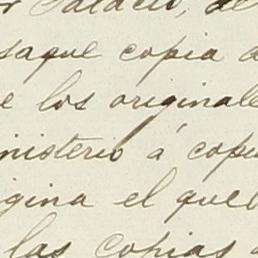 r Palacio, de
saque copia d
e los originale
nisterio á copi
gina el que
las copias